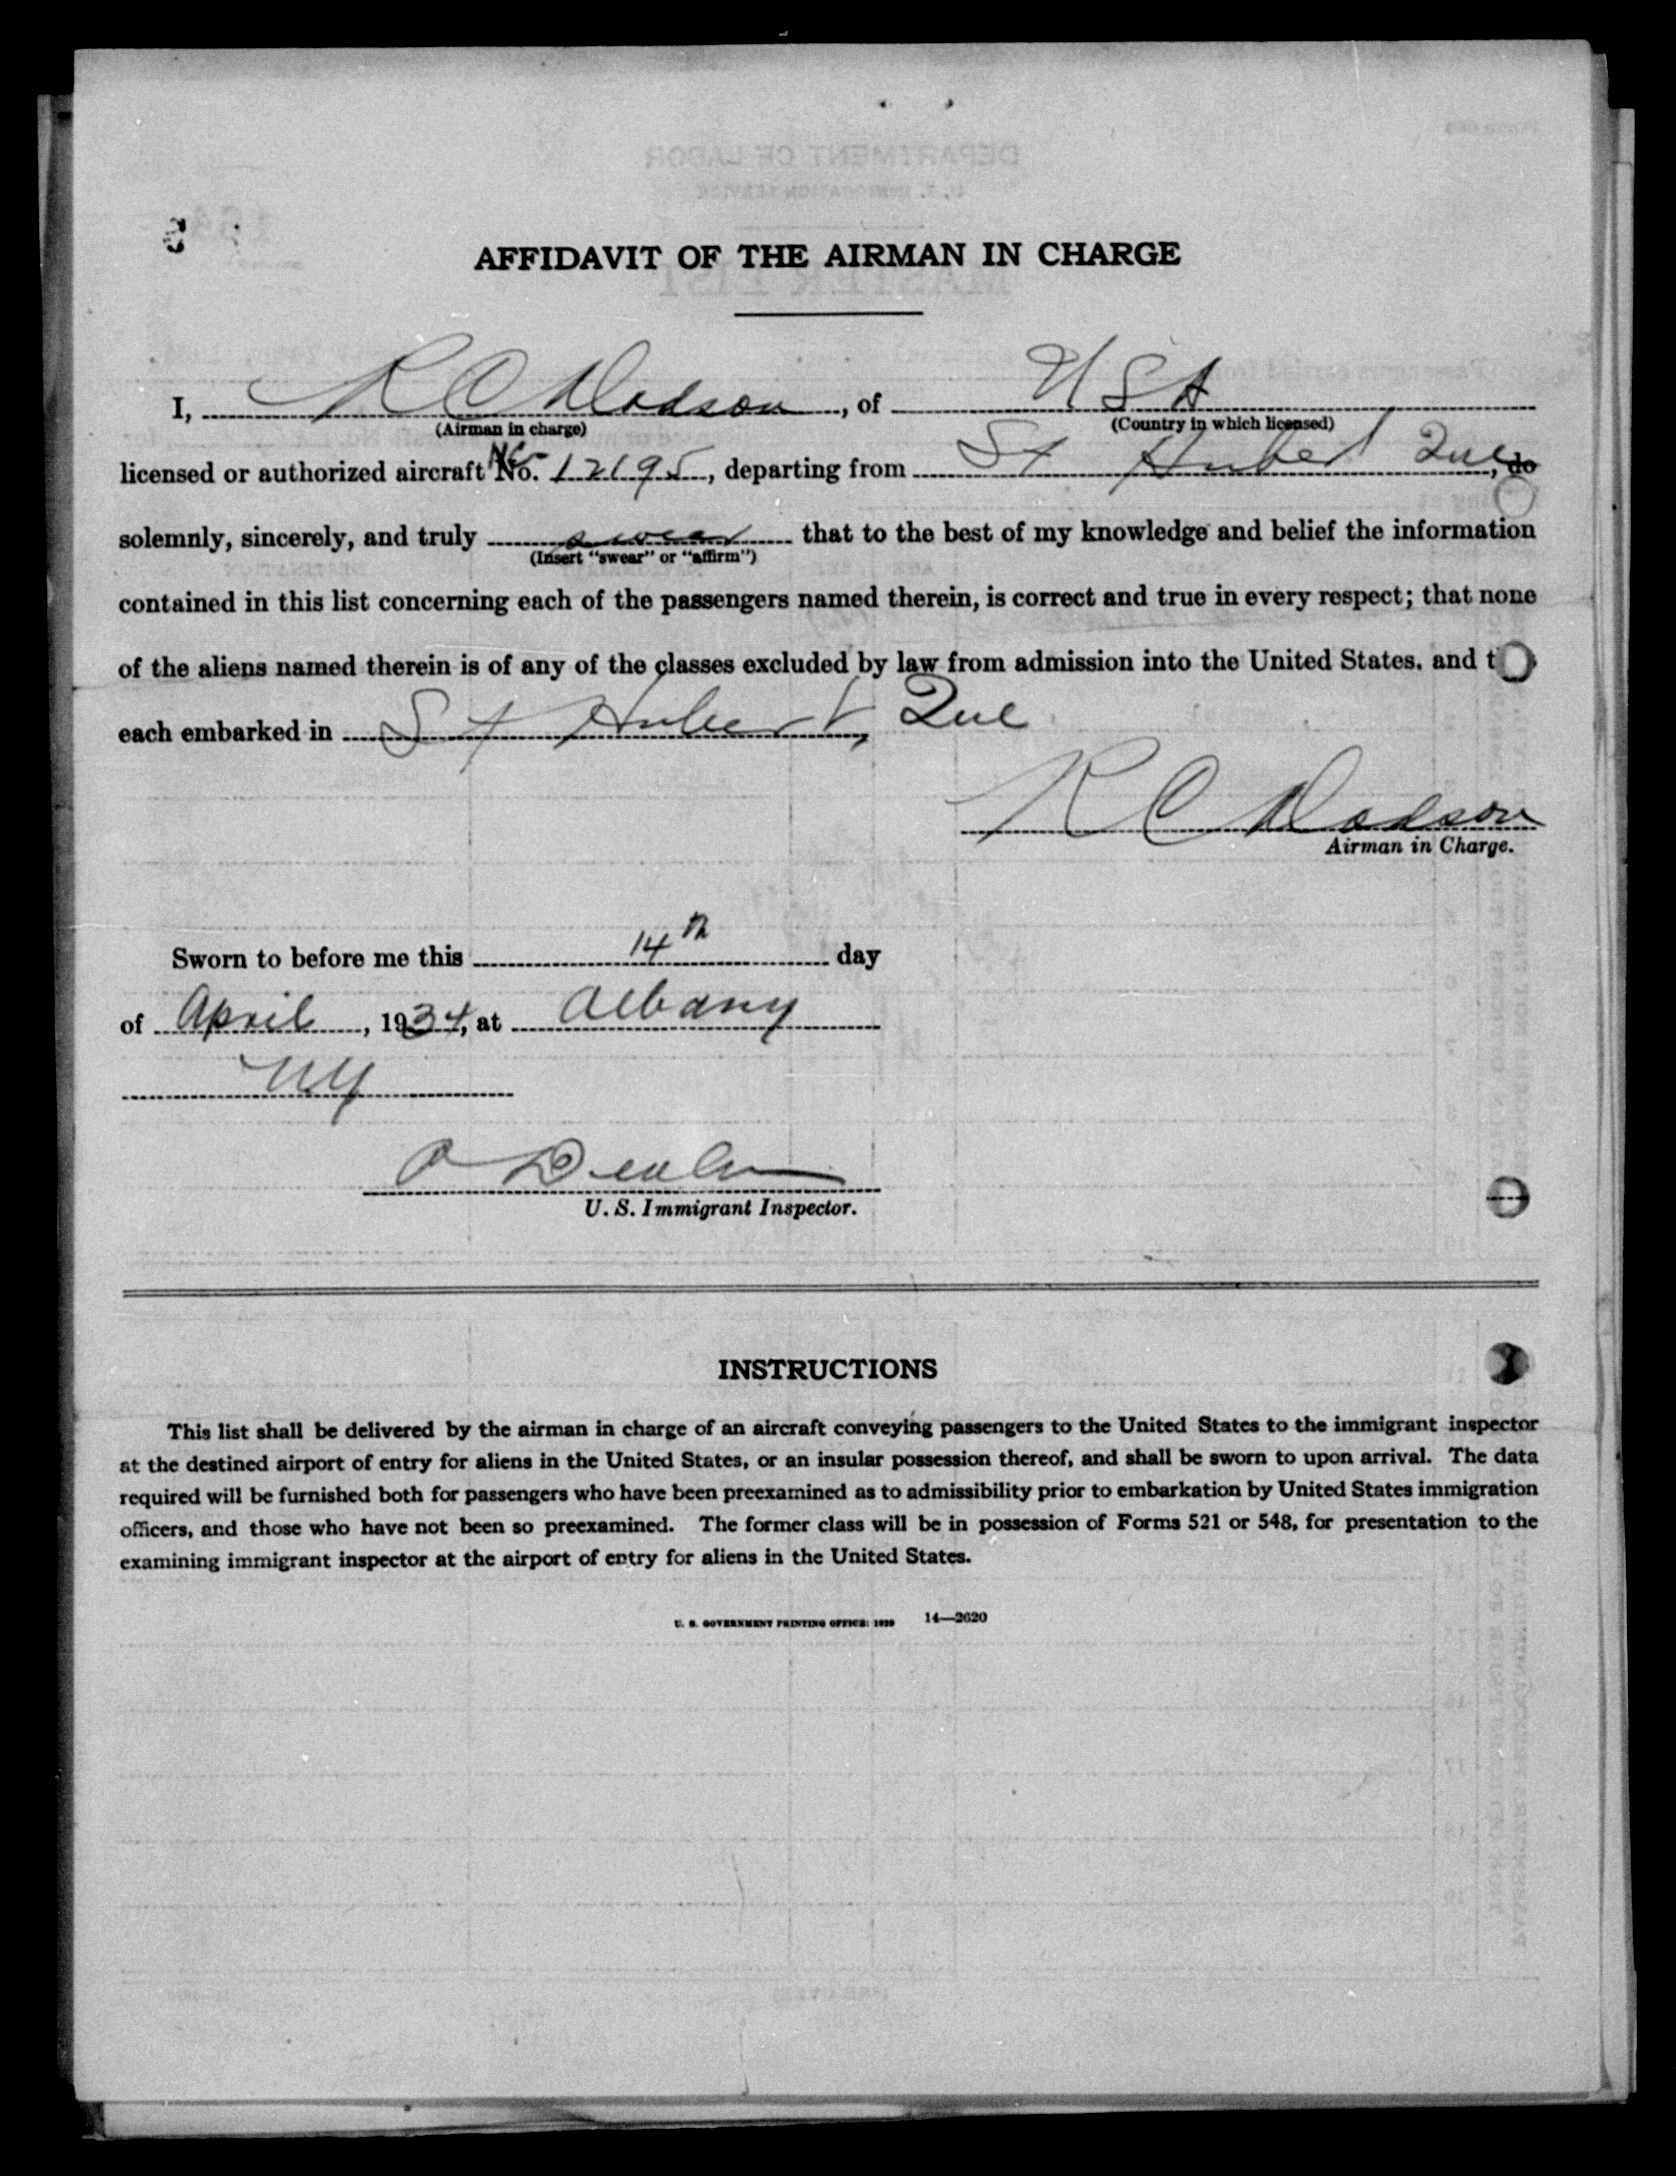 AFFIDAVIT OF THE AIRMAN IN CHARGE
I, R C Dodson, of USA
(Airman in charge) (Country in which licensed)
licensed or authorized aircraft No. NC 12195, departing from St Hubert Que, do
solemnly, sincerely, and truly swear that to the best of my knowledge and belief the information
(Insert "swear" or "affirm")
contained in this list concerning each of the passengers named therein, is correct and true in every respect; that none
of the aliens named therein is of any of the classes excluded by law from admission into the United States, and t
each embarked in St Hubert, Que
R C Dodson
Airman in Charge.
Sworn to before me this 14th day
of April, 1934, at Albany
NY
U. S. Immigrant Inspector.
INSTRUCTIONS
This list shall be delivered by the airman in charge of an aircraft conveying passengers to the United States to the immigrant inspector
at the destined airport of entry for aliens in the United States, or an insular possession thereof, and shall be sworn to upon arrival. The data
required will be furnished both for passengers who have been preexamined as to admissibility prior to embarkation by United States immigration
officers, and those who have not been so preexamined. The former class will be in possession of Forms 521 or 548, for presentation to the
examining immigrant inspector at the airport of entry for aliens in the United States.
U. S. GOVERNMENT PRINTING OFFICE: 1929 14—2620